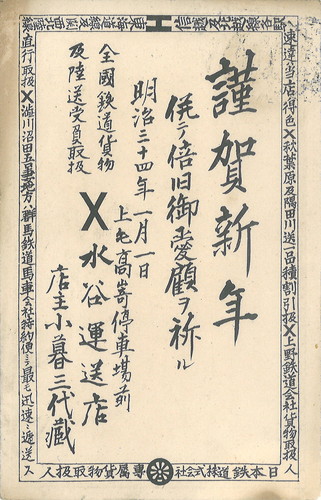 謹賀新年
併テ倍旧御愛顧ヲ祈ル
明治三十四年一月一日
上毛高崎停車場前
水谷運送店
店主小暮三代蔵
全國鉄道貨物
及陸送受負取扱
速達ハ当店得色X秋葉原及隅田川送一品種割引扱X上野鉄道会社貨物取扱人
日本鉄道株式会社専属貨物取扱人
直行取扱X澁川沼田五妻地方ハ群馬鉄道馬車会社特約便ニテ最モ迅速ニ逓送ス
東海道線及関西線